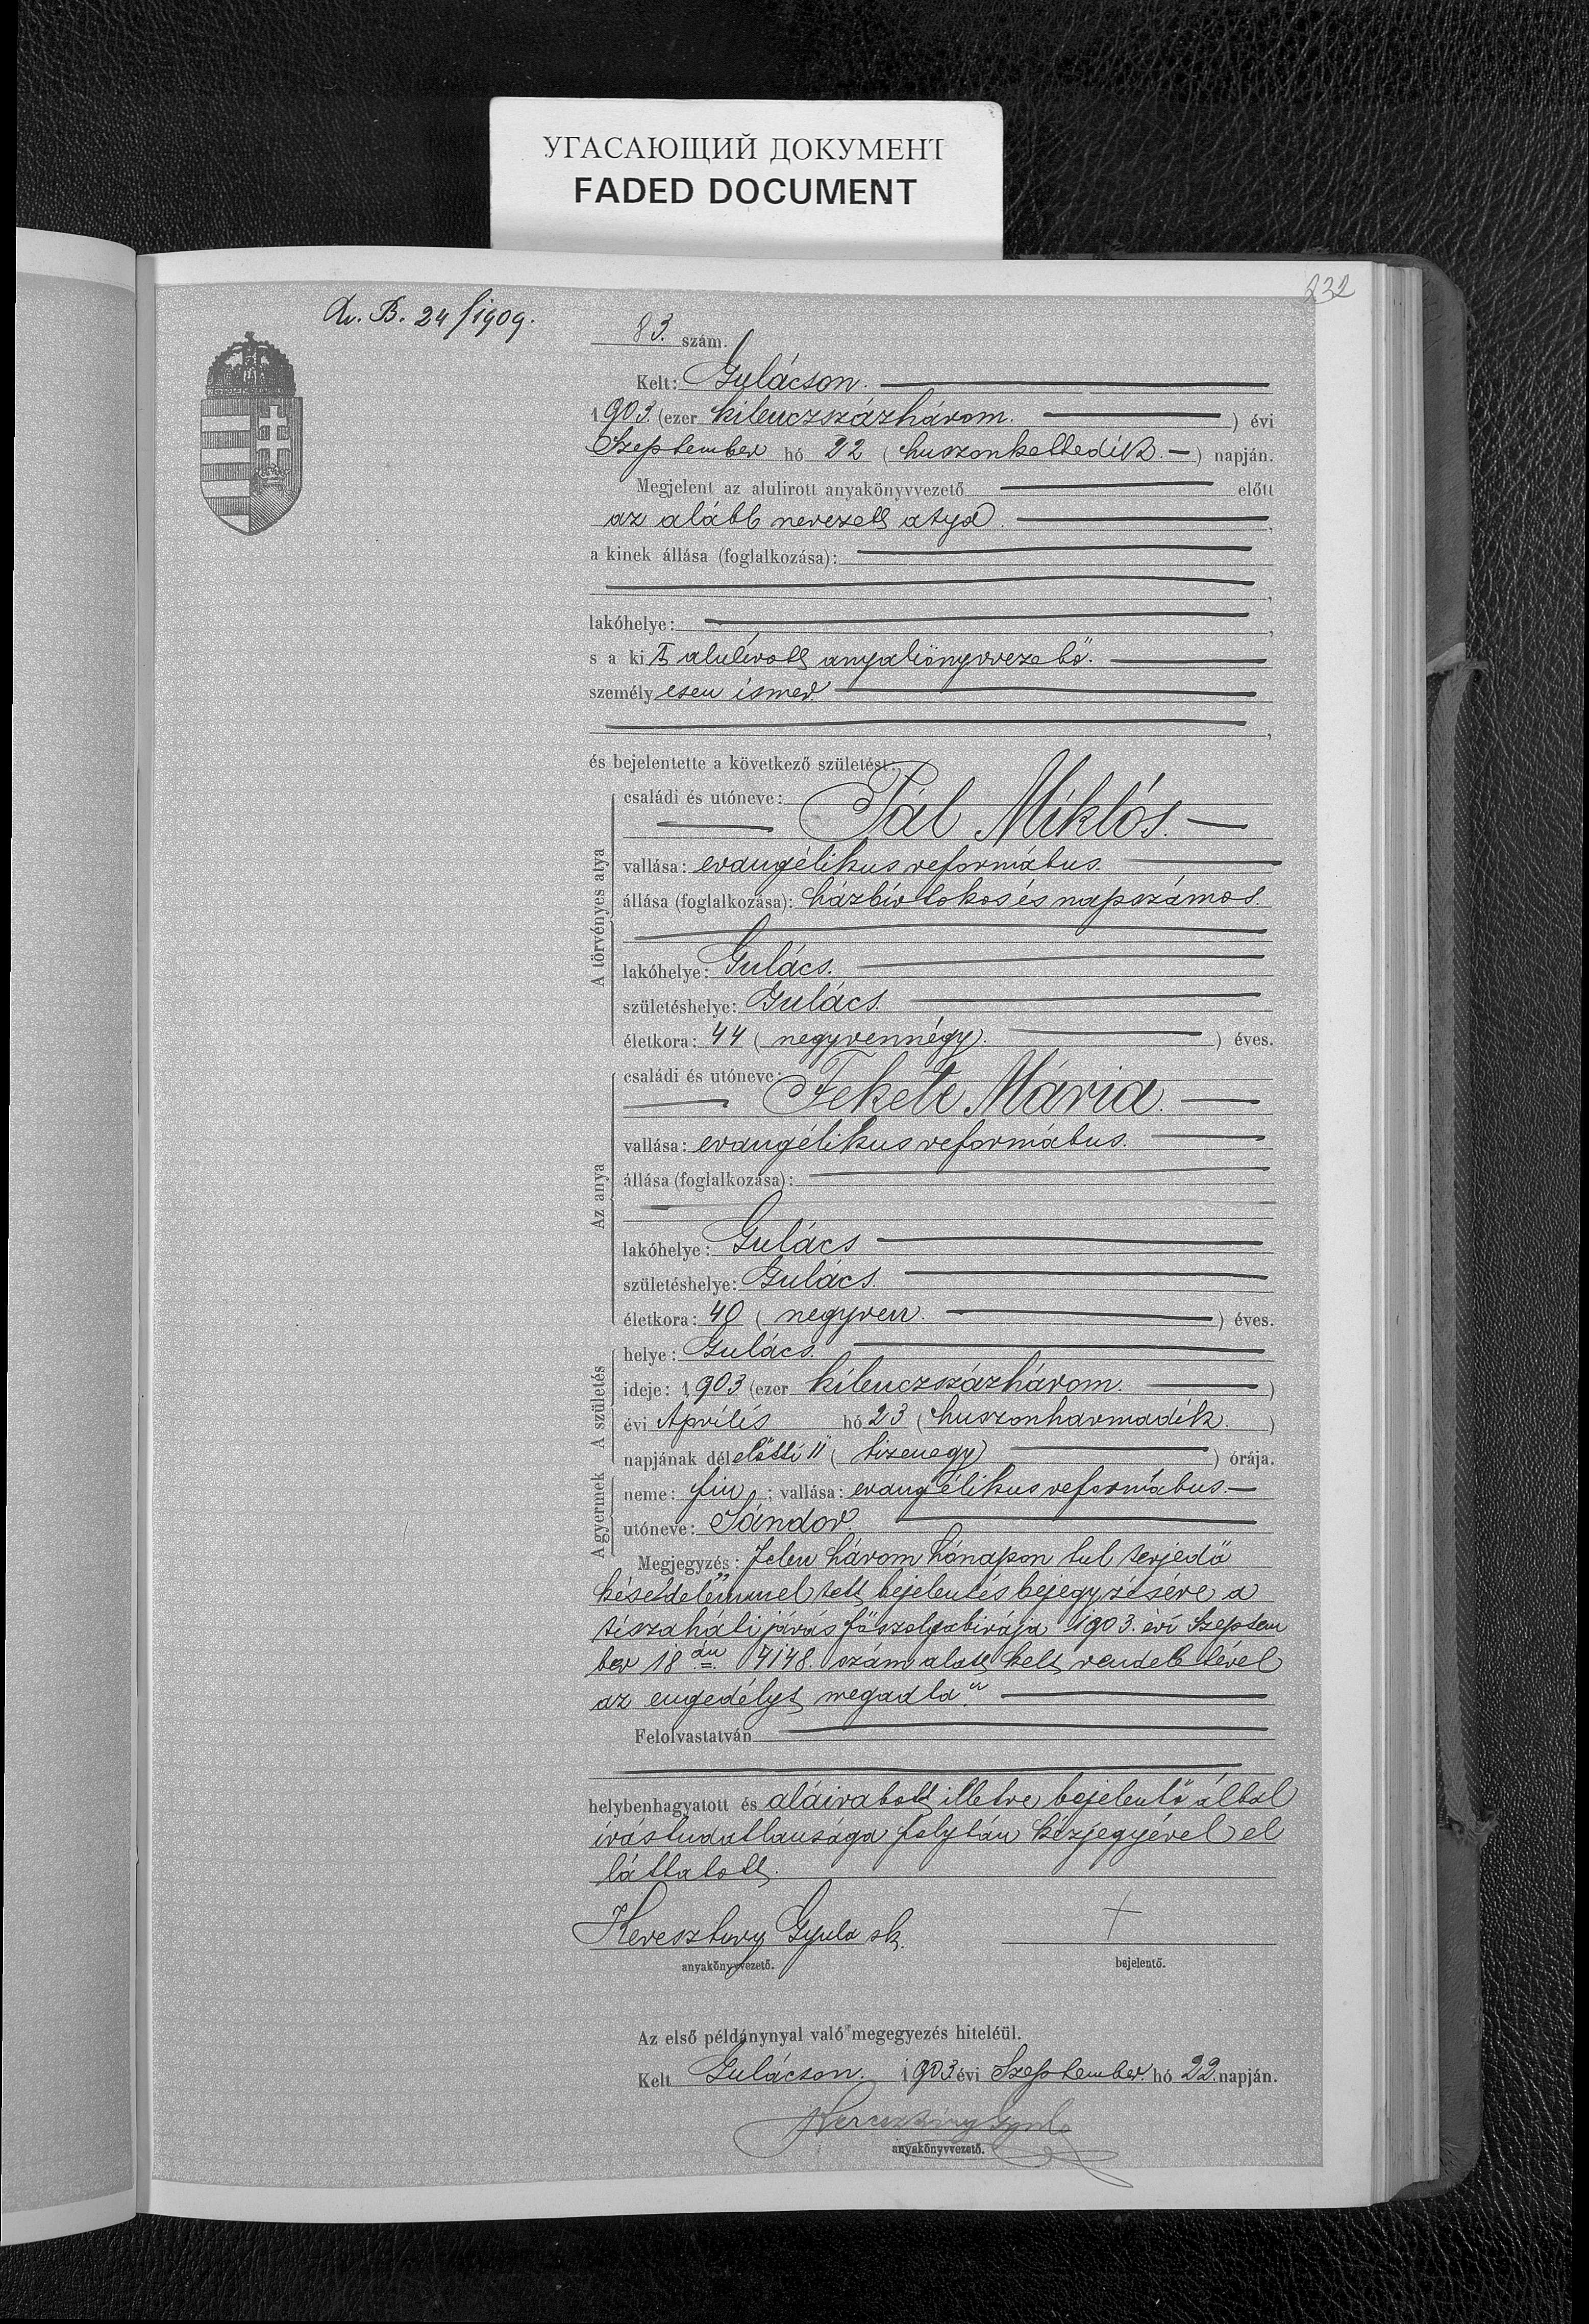 УГАСАЮЩИЙ ДОКУМЕНТ
FADED DOCUMENT
232
B. 24/1909.
83. szám.
Kelt: Gulácson.
1903. (ezer kilenczszázhárom. ) évi
Szeptember hó 22 (huszonkettedik. ) napján.
Megjelent az alulirott anyakönyvvezető előtt
az alább nevezett atya.
a kinek állása (foglalkozása):
lakóhelye:
s a kit alulírott anyakönyvvezető.
személyesen ismer
és bejelentette a következő születést:
A törvényes atya
családi és utóneve: Pál Miklós.
vallása: evangélikus református.
állása (foglalkozása): házbirtokos és napszámos.
lakóhelye: Gulács.
születéshelye: Gulács.
életkora: 44 (negyvennégy. ) éves.
Az anya
családi és utóneve: Fekete Mária.
vallása: evangélikus református.
állása (foglalkozása):
lakóhelye: Gulács
születéshelye: Gulács.
életkora: 40 (negyven. ) éves.
A születés
helye: Gulács.
ideje: 1,903 (ezer kilenczszázhárom. )
évi Április hó 23 (huszonharmadik. )
napjának délelőtti 11 (tizenegy ) órája.
A gyermek
neme: fiu ; vallása: evangélikus református.
utóneve: Sándor.
Megjegyzés: Jelen három hónapon tul terjedő
késedelemmel tett bejelentés bejegyzésére a
tiszaháti járás főszolgabirája 1903. évi Szeptem
ber 18án 7148. szám alatt kelt rendeletével
az engedélyt megadta"
Felolvastatván
helybenhagyatott és aláiratott illetve bejelentő által
irástudatlansága folytán kézjegyével el
láttatott.
Keresztury Gyula sk. +
anyakönyvvezető. bejelentő.
Az első példánynyal való megegyezés hiteléül.
Kelt Gulácson. 1903. évi Szeptember. hó 22. napján.
Keresztury Gyula
anyakönyvvezető.